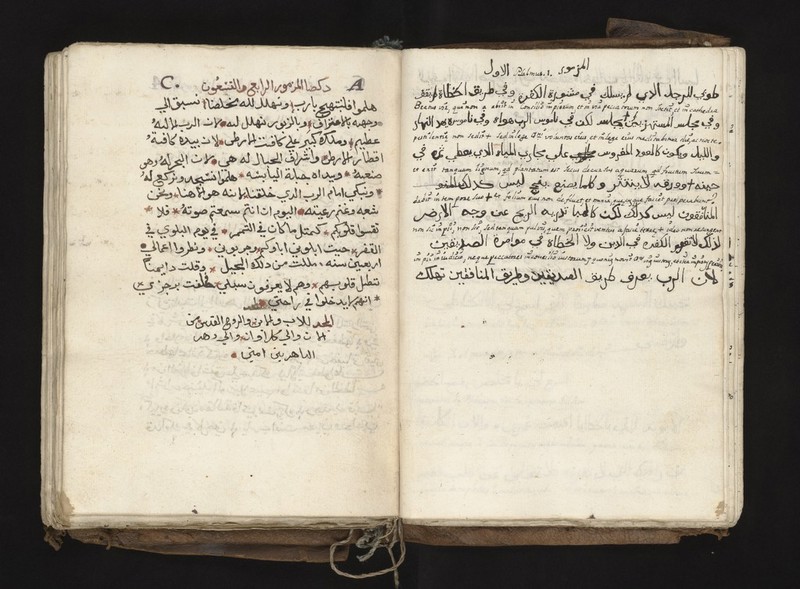 A ذكصا المزمور الرابع والتسعون C.
هلموا فلنبتهج بالرب ونهلل لله مخلصنا نسبق الى
وجهه بالاعتراف وبالزبور نهلل له لان الرب اله
عظيم وملك كبير على كافة الارض لان بيده كافة
اقطار الارض واشراف الجبال له هى لان البحر له وهو
صنعه ويداه جبلتا اليابسة هلموا نسجد ونركع له
ونبكى امام الرب الذي خلقنا لانه هو الهنا ونحن
شعبه وغنم رعيته اليوم ان انتم سمعتم صوته فلا
تقسوا قلوبكم كمثل ما كان في التمرمر في يوم البلوي في
القفر حيث ابلوني اباوكم وجربوني ونظروا اعمالي
اربعين سنة مللت من ذلك الجيل وقلت دايمًا
تضل قلوبهم وهم لا يعرفون سبلي حلفت برجزي
انهم لا يدخلوا في راحتي
المجد للاب والابن والروح القدس من
الان والى كل اوان والى دهر
الداهرين امين
المزمور الاول Psalmus. 1.
طوبى للرجل الذي لم يسلك في مشورة الكفر وفي طريق الخطاة لم يقف
Beatus vir, qui non abiit in consilio impiorum et in via peccatorum non stetit, et in cathedra
وفي مجلس المستهزين لم يجلس لكن في ناموس الرب هواه وفي ناموسه يهد النهار
pestilentiæ non sedit
والليل ويكون كالعود المغروس على مجاري المياه الذي يعطي ثمره في
et erit tanquam lignum quod plantatum est secus decursus aquarum quod fructum suum
حينه وورقه لا ينتثر وكلما يصنع ينجح ليس كذلك
dabit in tempore suo et folium eius non defluet et omnia quæcunque faciet prosperabuntur
المنافقون ليس كذلك لكن كالهبا تذريه الريح عن وجه الارض
non sic impii, non sic, sed tanquam pulvis quem proiicit ventus a facie terræ
لذلك لا تقوم الكفرة في الدين ولا الخطاة في موامرة الصديقين
impii in iudicio, neque peccatores in consilio iustorum
لان الرب يعرف طريق الصديقين وطريق المنافقين تهلك